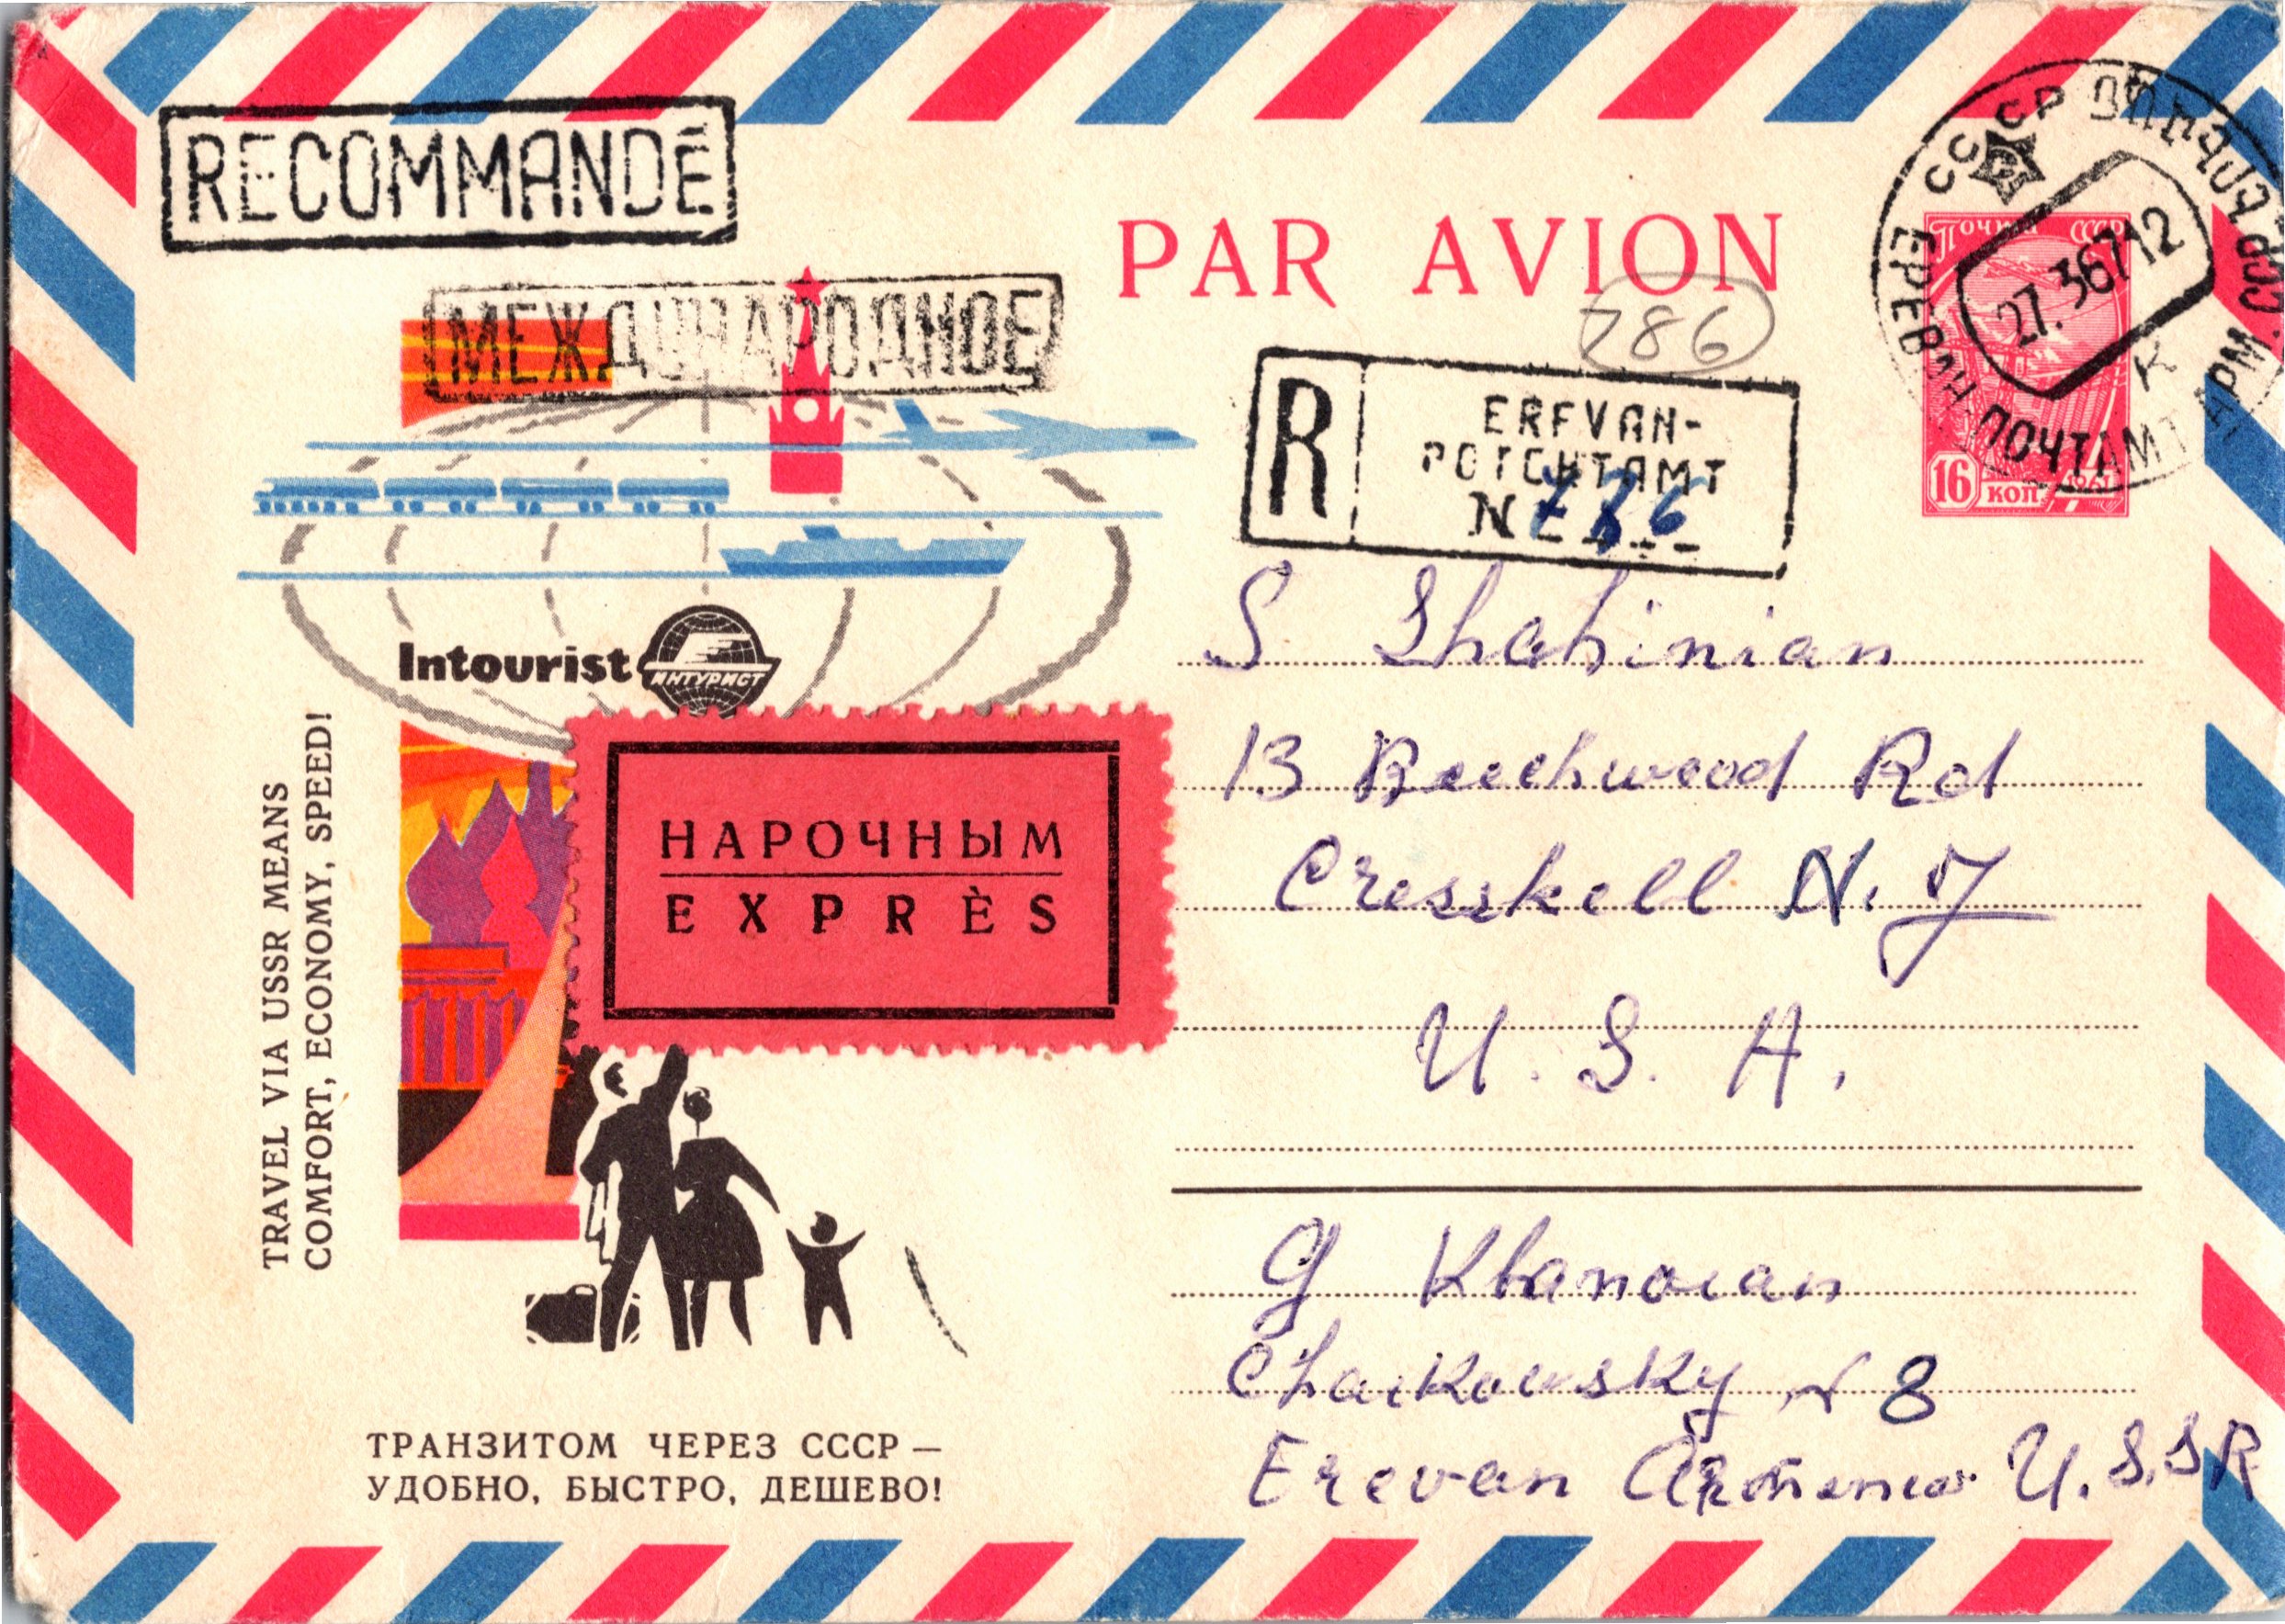 RECOMMANDÉ
PAR AVION
МЕЖДУНАРОДНОЕ
286
Почта СССР
16 коп
1961
СССР
27.36712
К
ЕРЕВАН-ПОЧТАМТ АРМ. ССР
R
EREVAN-
POTCHTAMT
N 786
Intourist
ИНТУРИСТ
TRAVEL VIA USSR MEANS
COMFORT, ECONOMY, SPEED!
НАРОЧНЫМ
EXPRÈS
S Shahinian
13 Beechwood Rd
Cresskell N. J
U. S. A.
G Khanoian
Chaikowsky N 8
Erevan Armenia U.S.SR
ТРАНЗИТОМ ЧЕРЕЗ СССР –
УДОБНО, БЫСТРО, ДЕШЕВО!